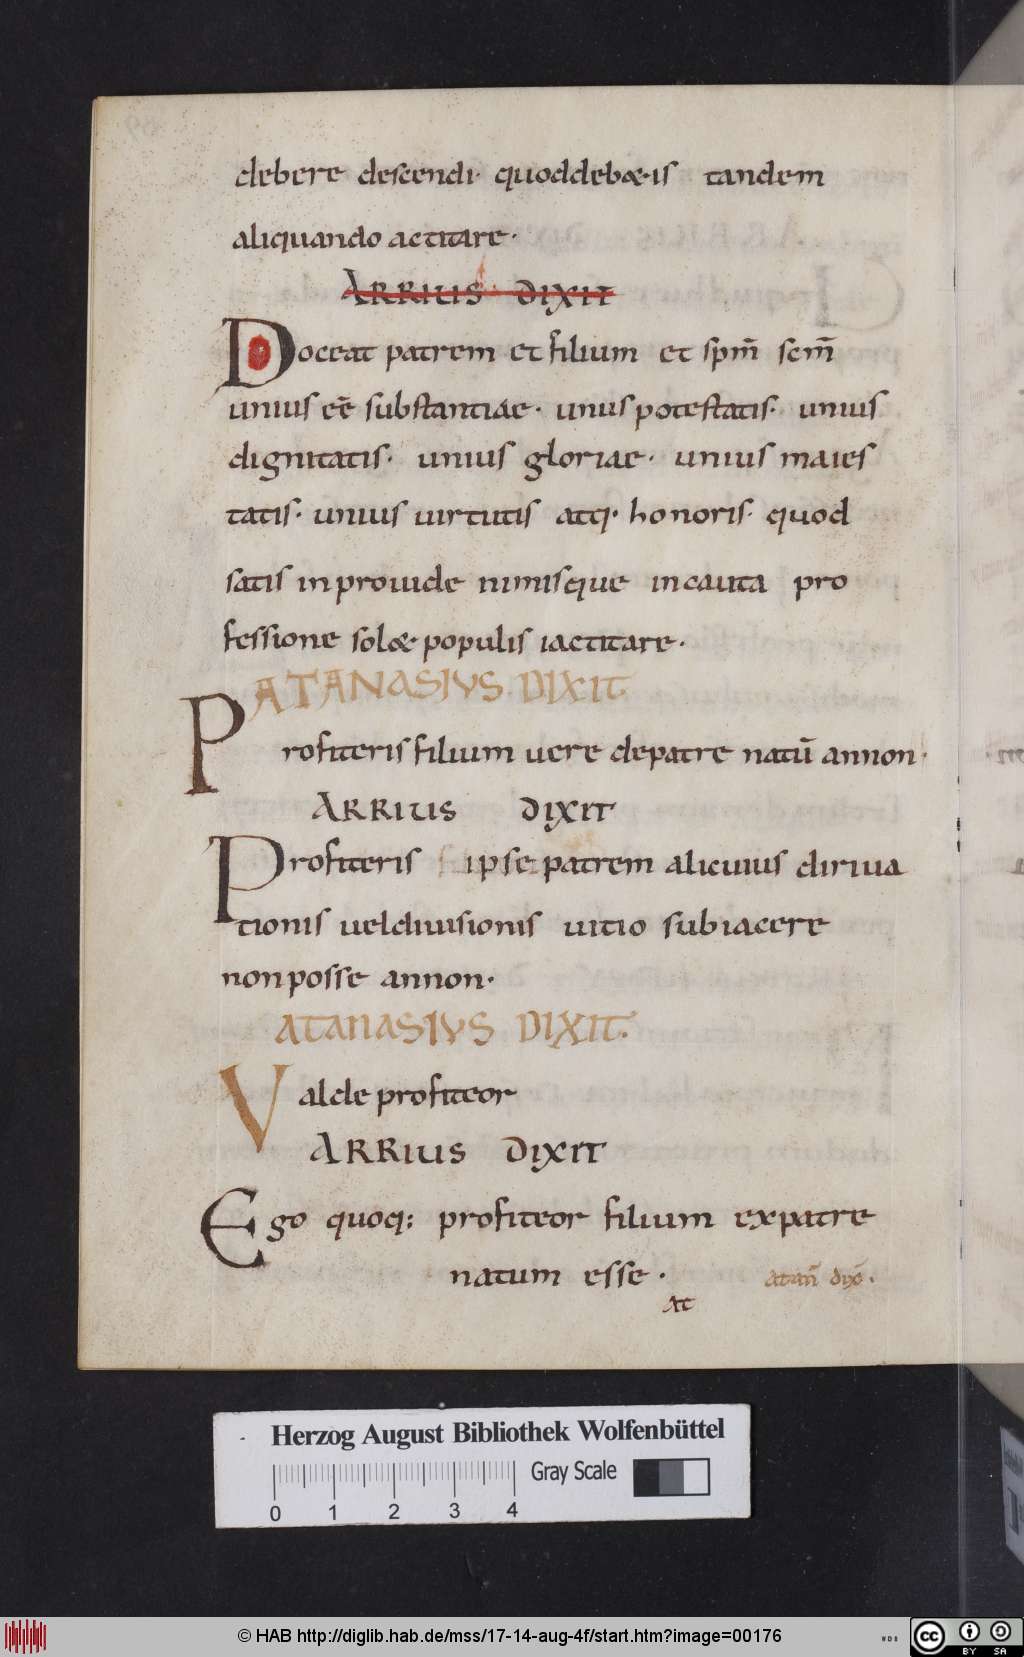 debere descendi· quoddebæis tandem
aliquando actitare·
ARRIUS DIXIT
Doceat patrem et filium et spm̄ scm̄
unius eē substantiae· unius potestatis· unius
dignitatis· unius gloriae· unius maies
tatis· unius uirtutis atq· honoris· quod
satis inprouide nimisque incauta pro
fessione solæ populis iactitare·
ATANASIVS DIXIT
Profiteris filium vere depatre natū annon·
ARRIUS DIXIT
Profiteris ipse patrem alicuius diriua
tionis ueldiuisionis uitio subiacere
nonposse annon·
ATANASIVS DIXIT·
Valde profiteor
ARRIUS DIXIT
Ego quoq; profiteor filium expatre
natum esse· atan̄ dix̄·
at
Herzog August Bibliothek Wolfenbüttel
Gray Scale
0 1 2 3 4
© HAB http://diglib.hab.de/mss/17-14-aug-4f/start.htm?image=00176
WDB
cc BY SA